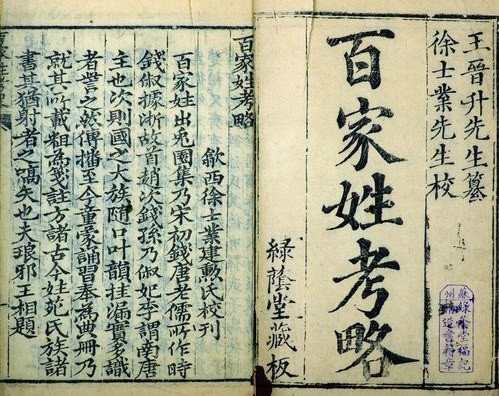 王晉升先生纂
徐士業先生校
百家姓考略
綠蔭堂藏板
蘇綠蔭堂福記
州造書籍章
百家姓考略
歙西徐士業建勳氏校刊
百家姓出兎園集乃宋初錢唐老儒所作時
錢俶據浙故首趙次錢孫乃俶妃李謂南唐
主也次則國之大族隨口叶韻挂漏實多識
者訾之然傳播至今童蒙誦習奉為典冊乃
就其所載粗為箋註方諸古今姓苑氏族諸
書其猶射者之嚆矢也夫琅邪王相題